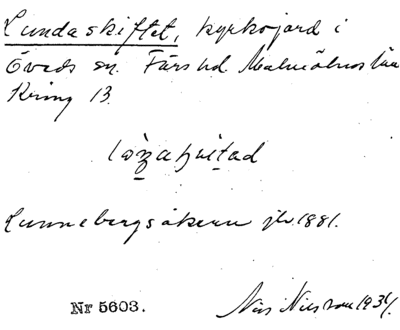 Lundaskiftet, kyrkojord i
Öveds sn. Färs hd. Malmöhus län
Kring 13.
Lunnebergsåkern jb. 1881.
Nr 5603.
Nils Nilsson 1934.